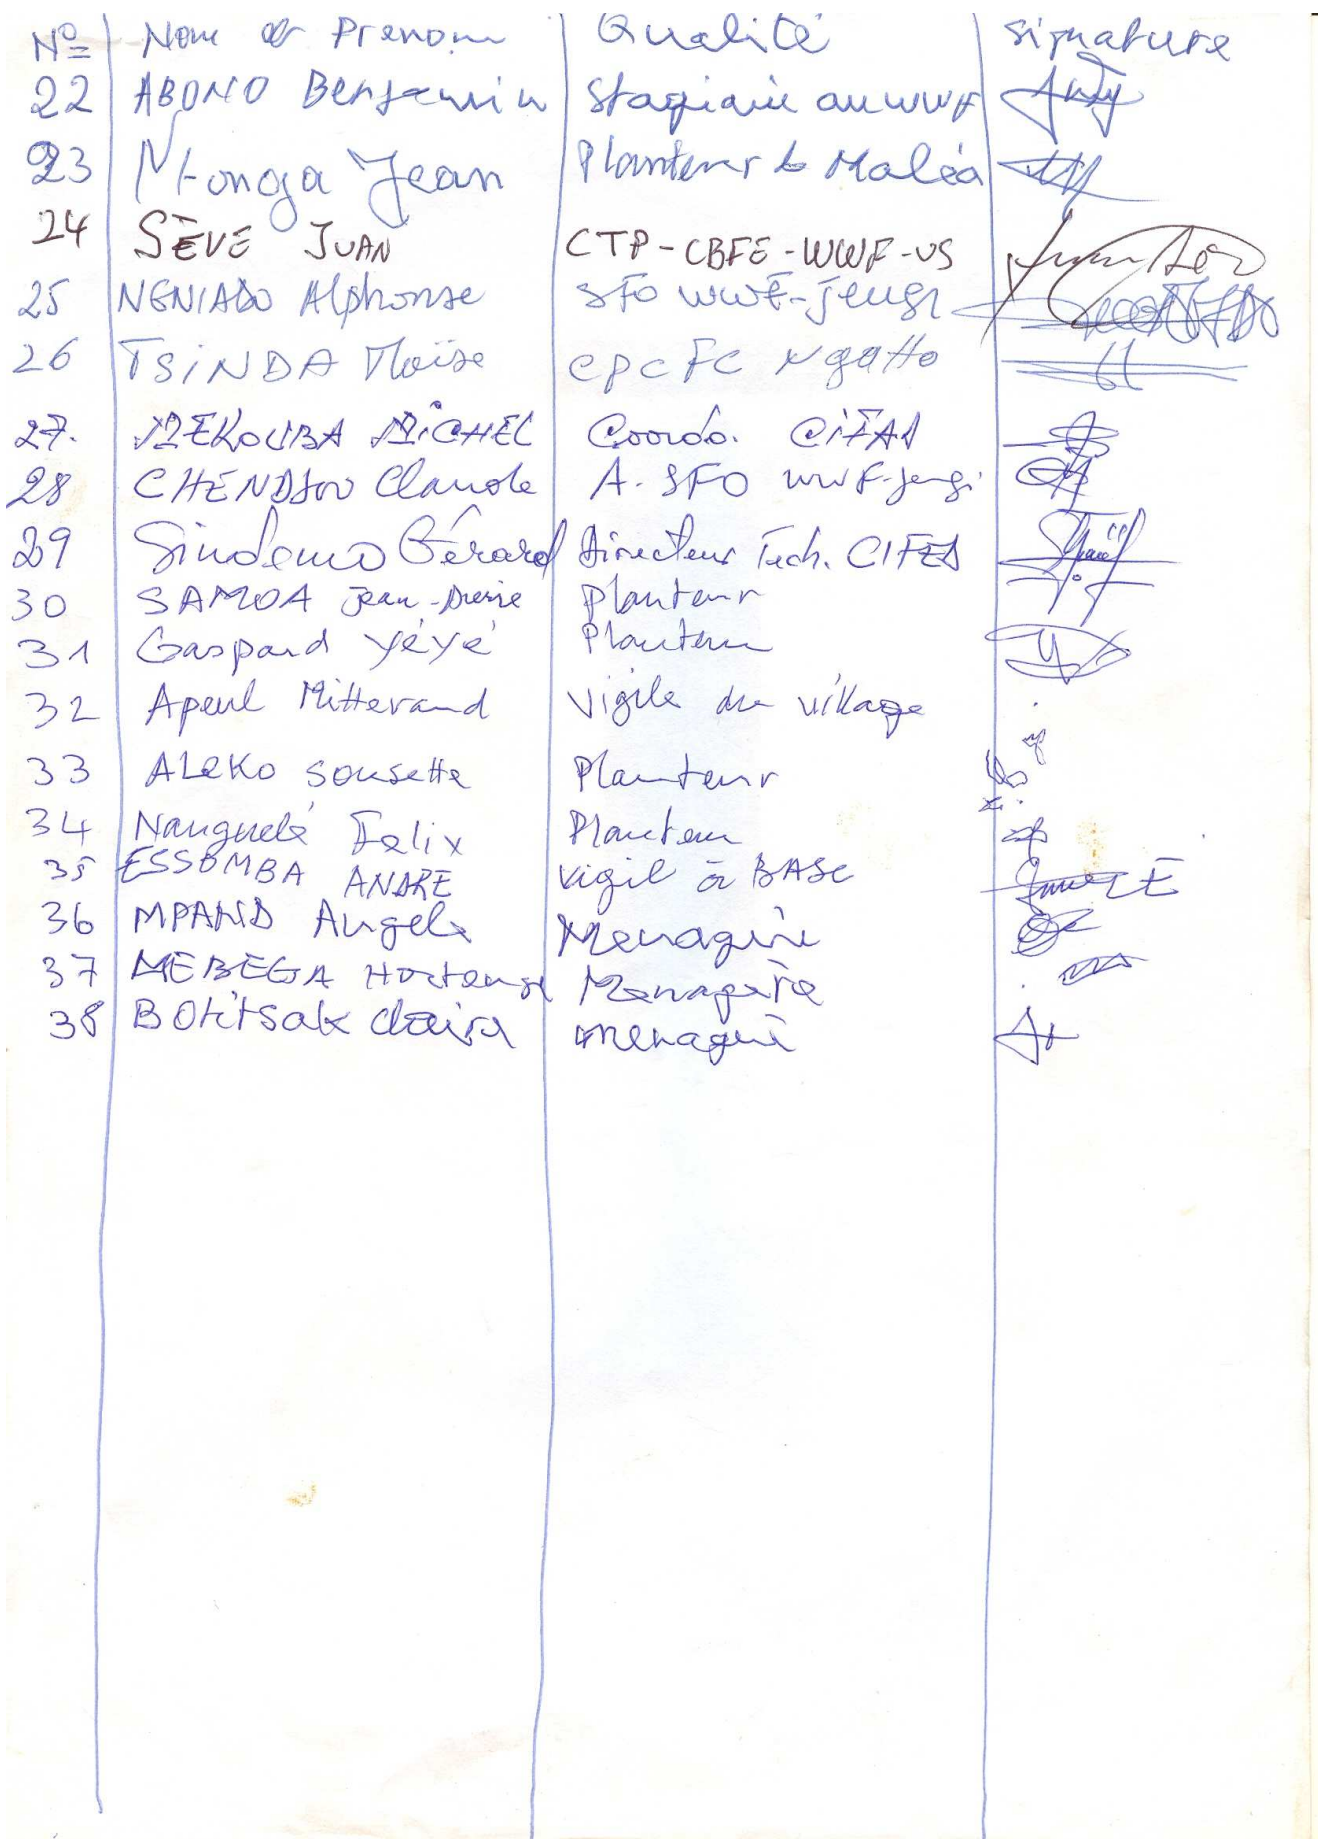 Nº Nom et Prenom Qualité signature
22 ABONO Benjamin Stagiaire au WWF
23 Ntonga Jean Planteur à Maléa
24 SÈVE JUAN CTP-CBFE-WWF-US
25 Alphonse SFO WWF-Jengi
26 TSINDA Moïse CPCFC Ngatto
27. MEKOUBA MICHEL Coordo. CIFAD
28 CHENDJOU Claude A. SFO WWF-Jengi
29 Gérard Directeur Tech. CIFED
30 SAMOA Jean-Pierre Planteur
31 Gaspard Yéyé Planteur
32 Apeul Mitterand Vigile du village
33 ALEKO Sousette Planteur
34 Nanguelé Felix Planteur
35 ESSOMBA ANDRE Vigil à BASE
36 MPAND Angele Menagère
37 MEBEGA Hortense Menagère
38 Claire menagère